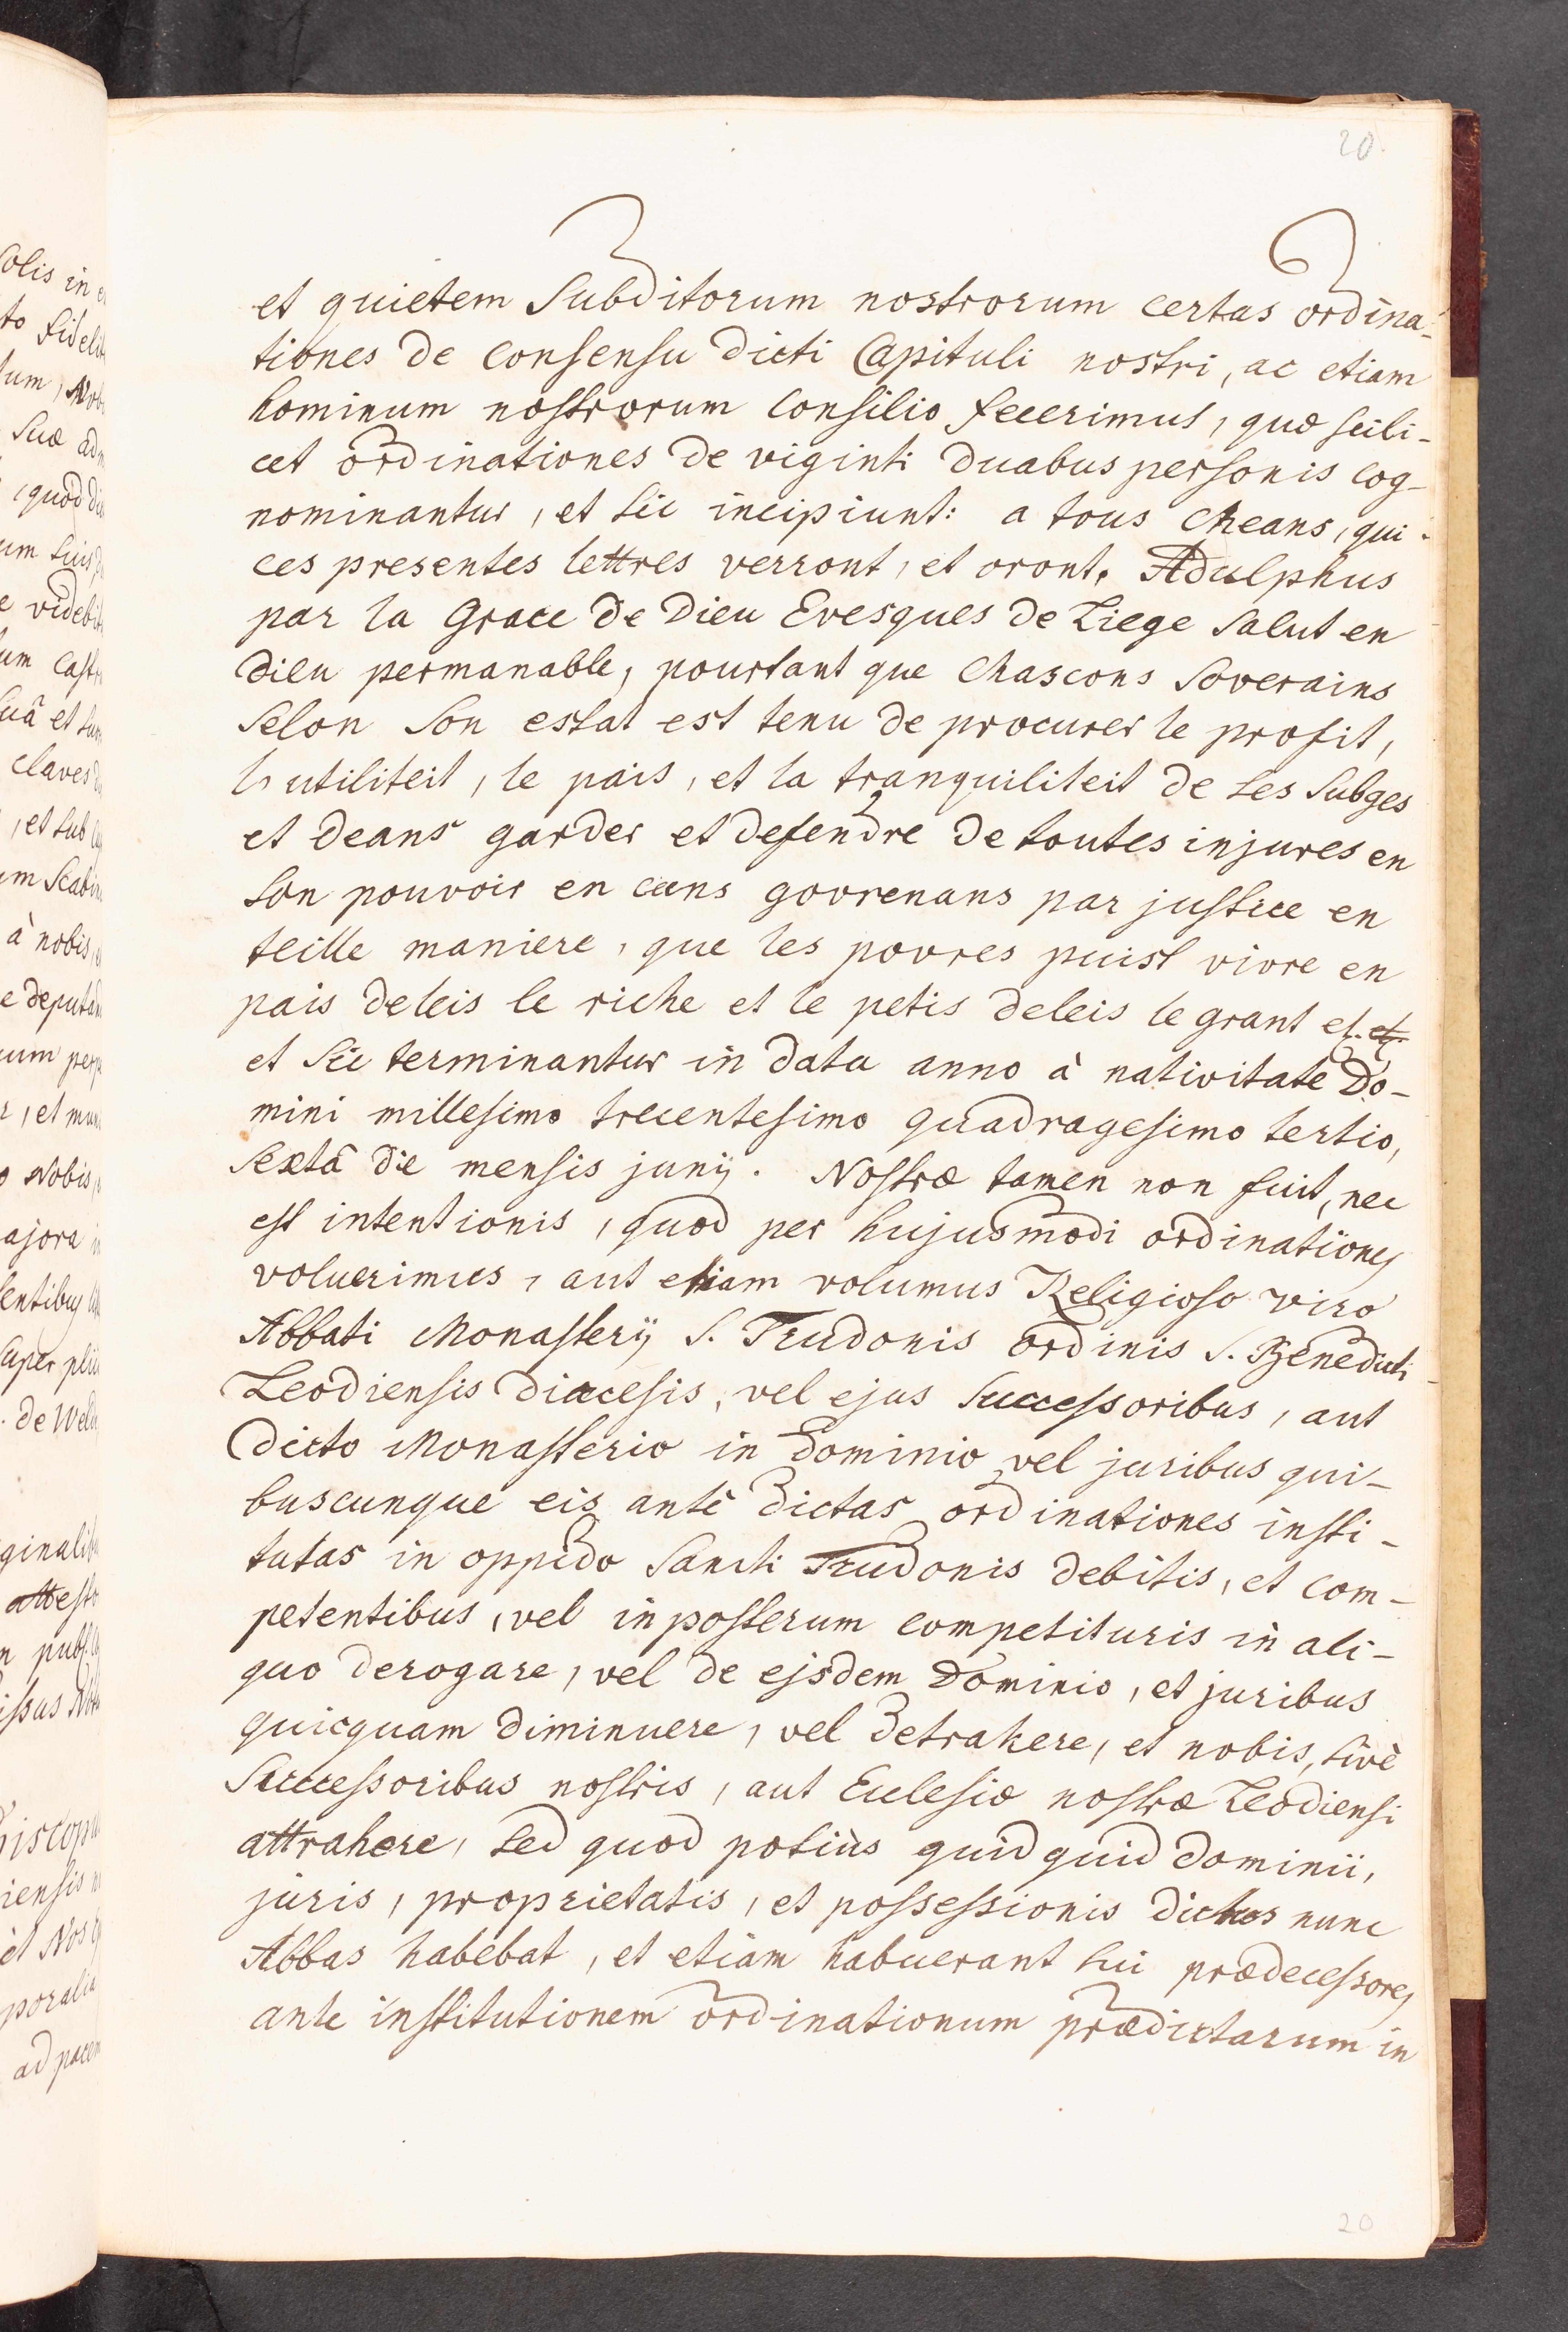 20.
et quietem Subditorum nostrorum certas ordina-
tiones de consensu dicti Capituli nostri, ac etiam
hominum nostrorum consilio fecerimus, quæ scili-
cet ordinationes de viginti duabus personis cog-
nominantur, et sic incipiunt: a tous cheans, qui
ces presentes lettres verront, et oront. Adulphus
par la Grace de Dieu Evesques de Liege Salut en
Dieu permanable, pourtant que chascons Soverains
Selon Son estat est tenu de procurer le profit,
l'utiliteit, le pais, et la tranquiliteit de ses Subges
et deans garder et defendre de toutes injures en
son pouvoir en ceens govrenans par justice en
teille maniere, que les povres puist vivre en
pais deleis le riche et le petis deleis le grant et.
et sic terminantur in data anno à nativitate Do-
mini millesimo trecentesimo quadragesimo tertio,
Sextâ die mensis junij. Nostræ tamen non fuit, nec
est intentionis, quod per hujusmodi ordinationes
voluerimus, aut etiam volumus Religioso viro
Abbati Monasterij S. Trudonis ordinis S. Benedicti
Leodiensis Diæcesis, vel ejus Successoribus, aut
Dicto Monasterio in Dominio vel juribus qui-
buscunque eis antè dictas ordinationes insti-
tutas in oppido Sancti Trudonis debitis, et com-
petentibus, vel inposterum competituris in ali-
quo derogare, vel de ejsdem Dominio, et juribus
quicquam diminuere, vel detrahere, et nobis, sivè
Successoribus nostris, aut Ecclesiæ nostræ Leodiensi
attrahere, sed quod potiùs quidquid dominii,
juris, proprietatis, et possessionis dictus nunc
Abbas habebat, et etiam habuerant sui prædecessores
ante institutionem ordinationum prædictarum in
20